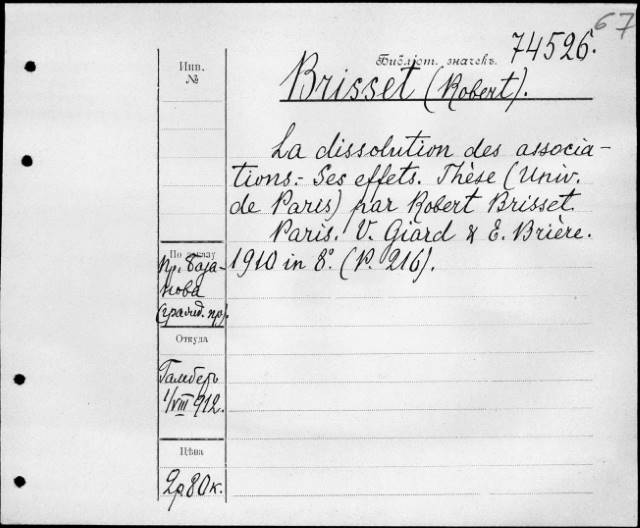 67
74526.
Инв.
№
Библіот. значекъ.
Brisset (Robert).
La dissolution des associa-
tions.- Ses effets. Thèse (Univ.
de Paris) par Robert Brisset.
Paris. V. Giard & E. Brière.
1910 in 8º. (P. 216).
По заказу
пр. База-
нова
(гражд. пр).
Откуда
Гамберъ
1/VIII 912.
Цѣна
2р.80к.